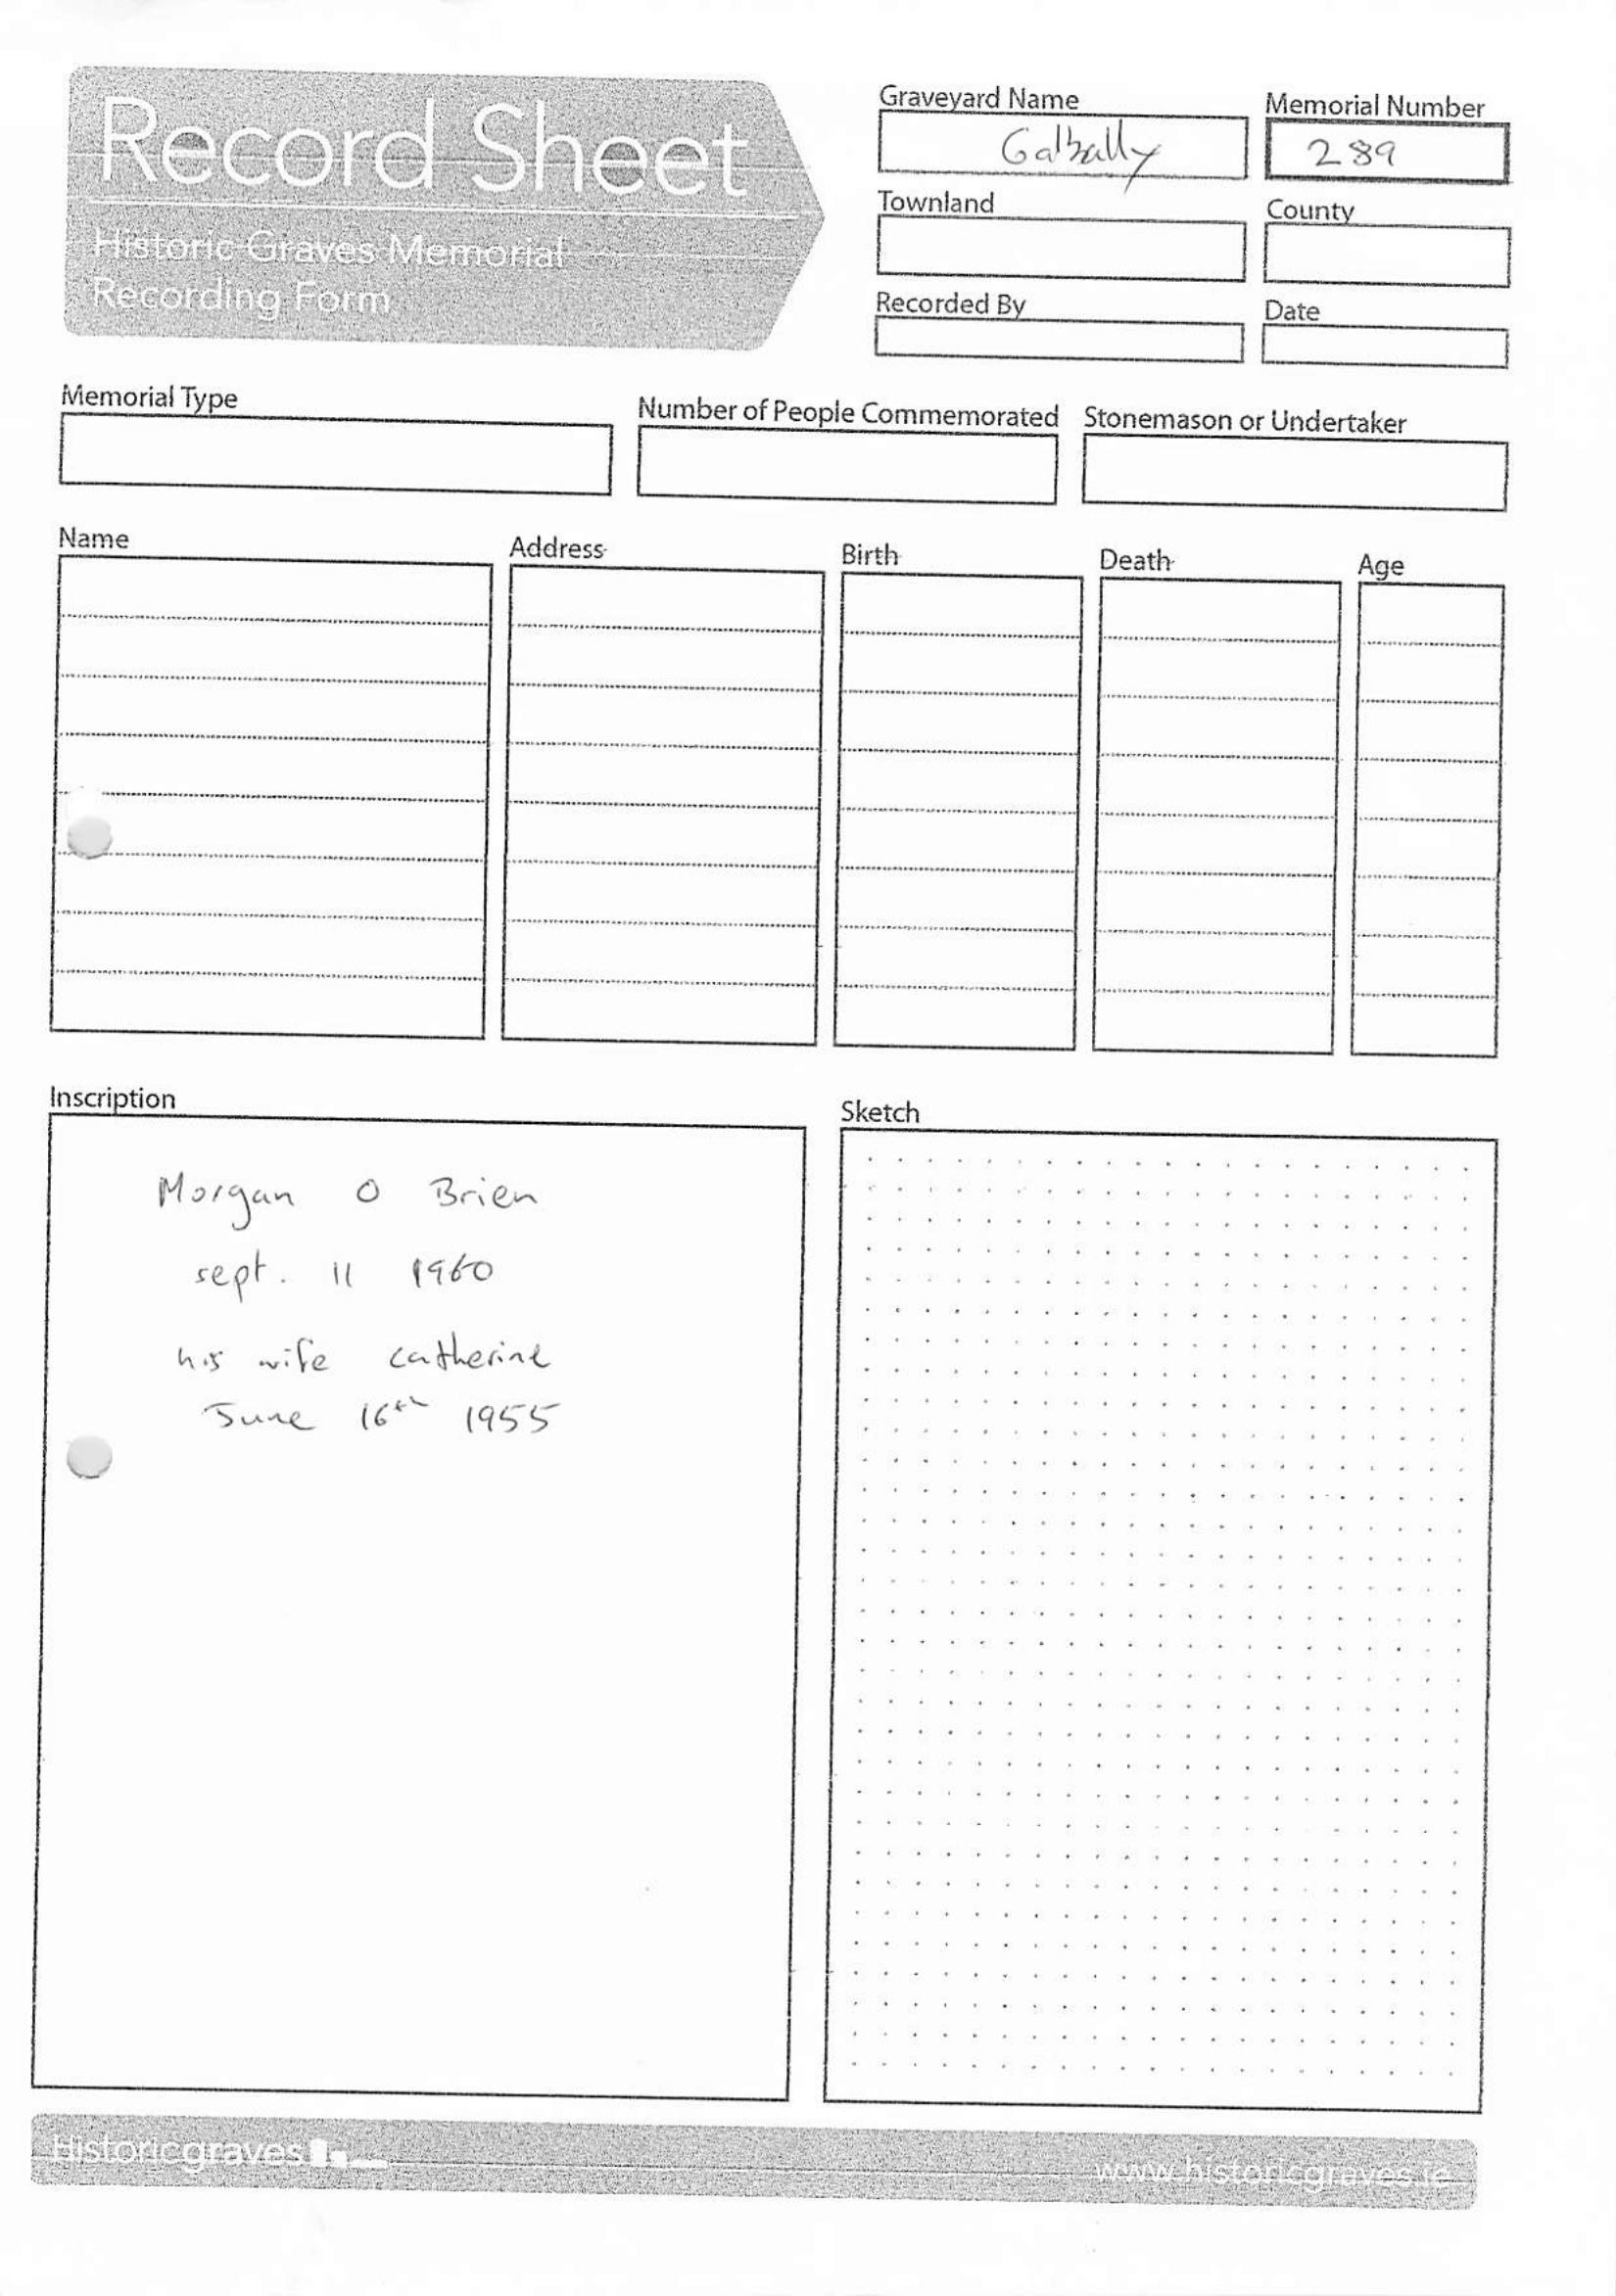 Record Sheet
Historic Graves Memorial
Recording Form
Graveyard Name
Galbally
Memorial Number
289
Townland
County
Recorded By
Date
Memorial Type
Number of People Commemorated
Stonemason or Undertaker
Name
Address
Birth
Death
Age
Inscription
Morgan O Brien
sept. 11 1960
his wife catherine
June 16th 1955
Sketch
Historicgraves
www.historicgraves.ie